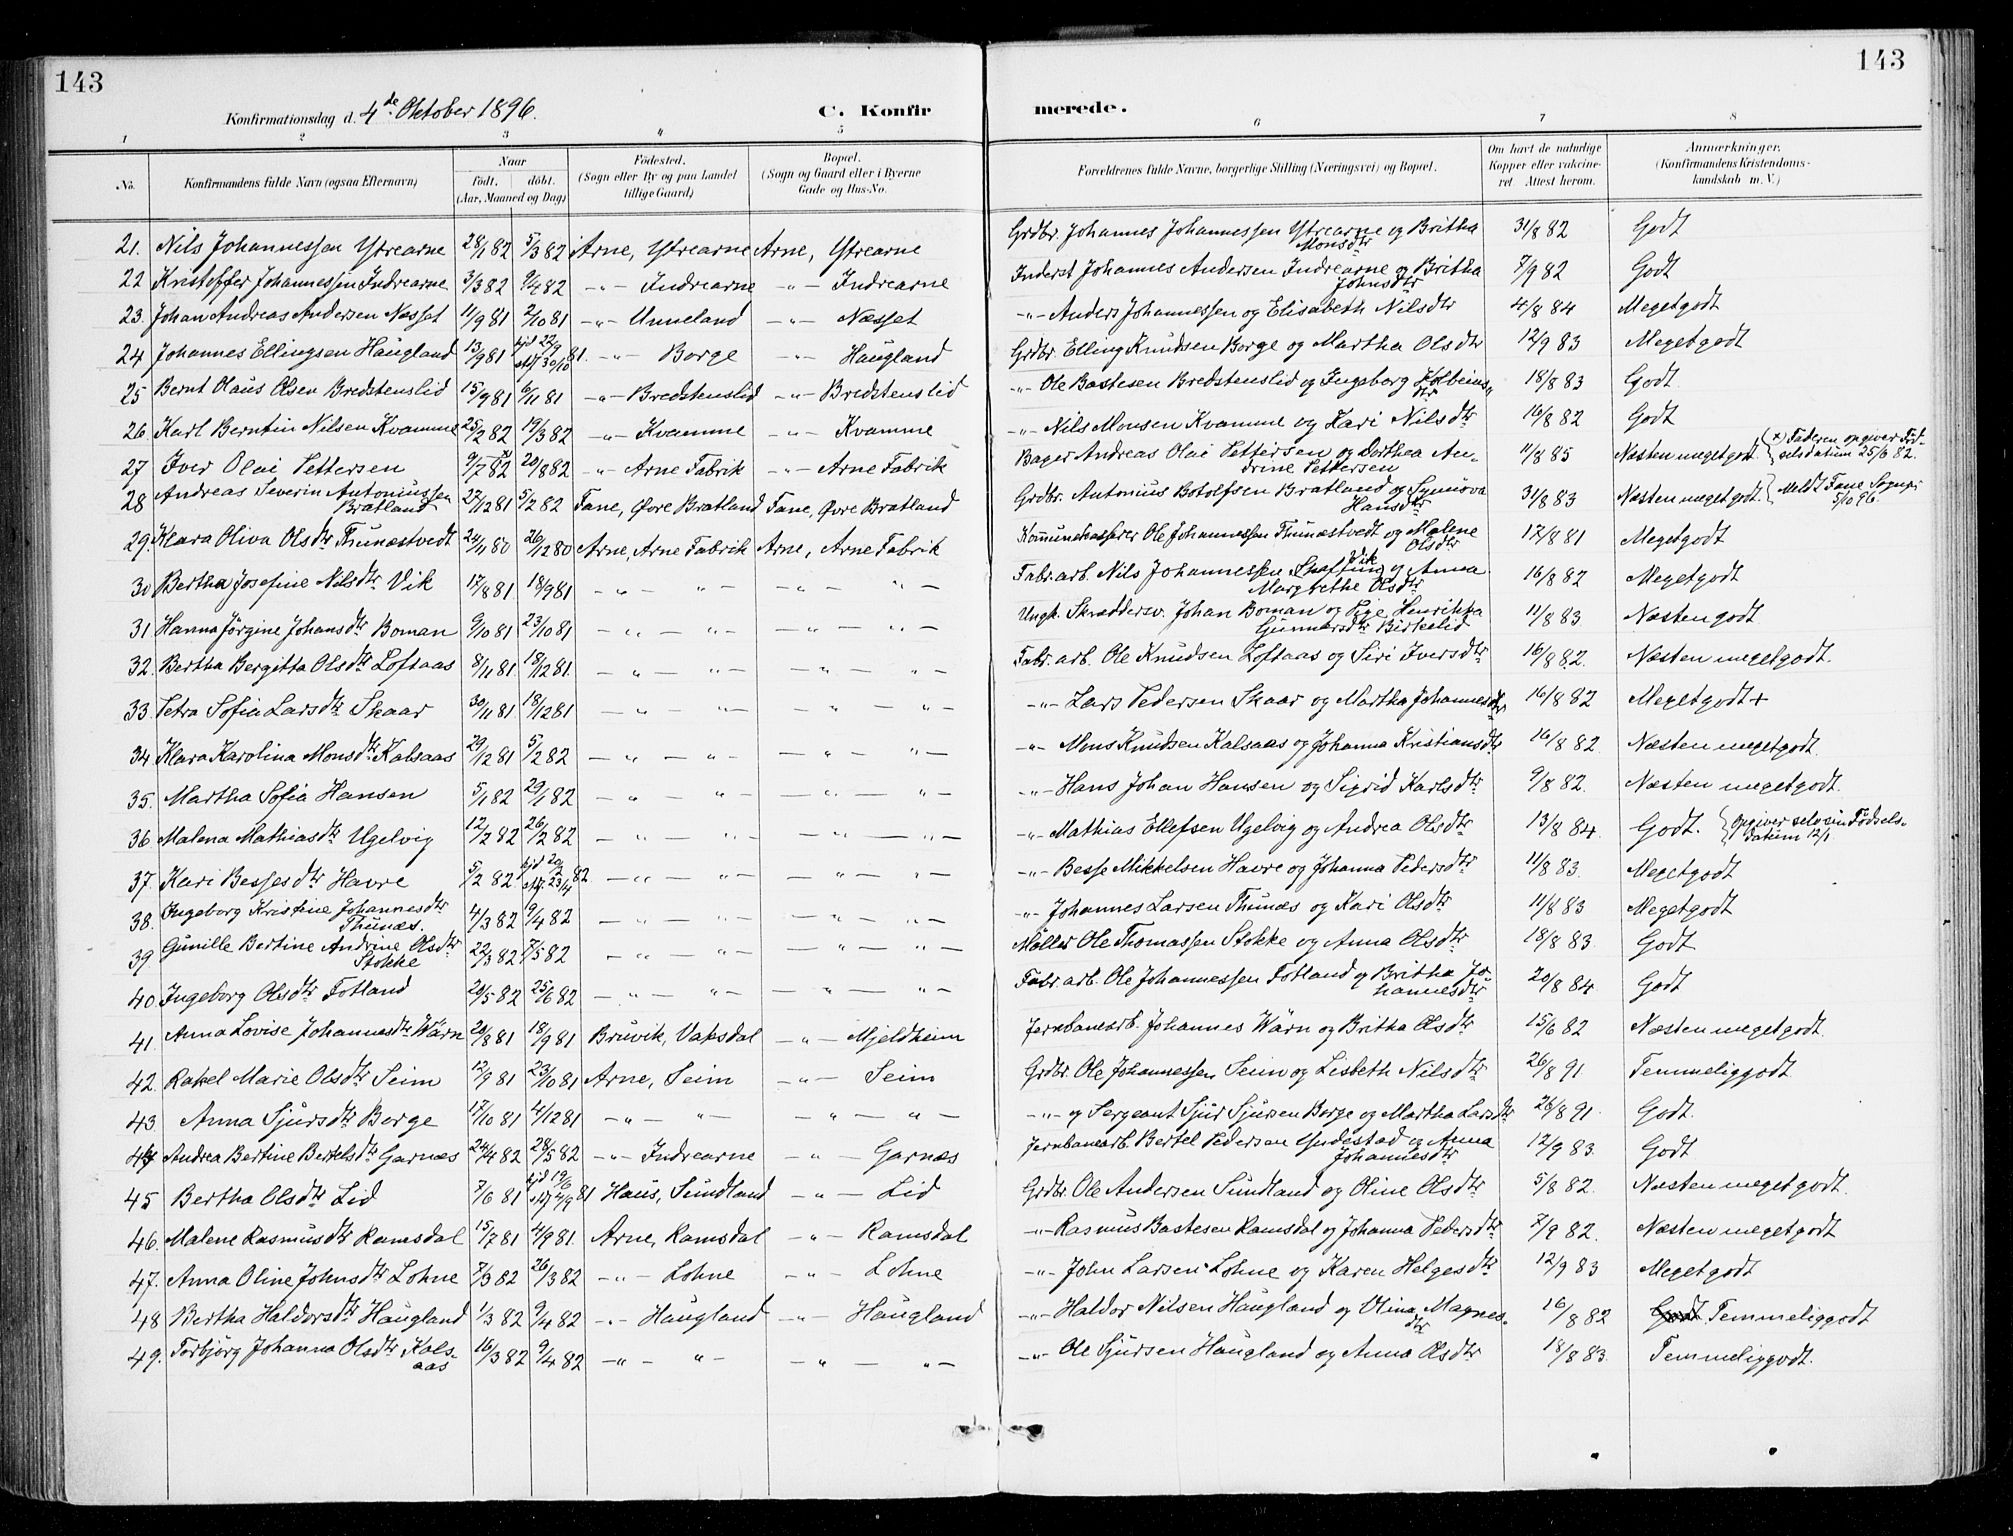 143
143
Konfirmationsdag d. 4de Oktober 1896.
C. Konfirmerede.
1 2 3 4 5 6 7 8
No. Konfirmandens fulde Navn (ogsaa Efternavn) Naar født, døbt. (Aar, Maaned og Dag) Fødested. (Sogn eller By og paa Landet tillige Gaard) Bopæl. (Sogn og Gaard eller i Byerne Gade og Hus-No. Forældrenes fulde Navne, borgerlige Stilling (Næringsvei) og Bopæl. Om havt de naturlige Kopper eller vakcineret. Attest herom. Anmærkninger. (Konfirmandens Kristendomskundskab m. V.)
21. Nils Johannessen Ytrearne 28/1 82 5/3 82 Arne, Ytrearne Arne, Ytrearne Grdbr. Johannes Johannessen Ytrearne og Britha Monsdtr 31/8 82 Godt
22 Kristoffer Johannessen Indrearne 3/3 82 9/4 82 -"- Indrearne -"- Indrearne Inderst Johannes Andersen Indrearne og Britha Johnsdtr 7/9 82 Godt
23. Johan Andreas Andersen Næsset 11/9 81 2/10 81 -"- Unneland -"- Næsset -"- Anders Johannessen og Elisabeth Nilsdtr 4/8 84 Megetgodt
24 Johannes Ellingsen Haugland 13/9 81 hjd 22/9 stdf 30/10 81. -"- Borge -"- Haugland Grdbr. Elling Knudsen Borge og Martha Olsdtr 12/9 83 Megetgodt
25 Bernt Olaus Olsen Bredstenslid 15/9 81 6/11 81 -"- Bredstenslid -"- Bredstenslid -"- Ole Bastesen Bredstenslid og Ingeborg Kolbeinsdtr 18/8 83 Godt.
26 Karl Berntin Nilsen Kvamme 25/2 82 19/3 82 -"- Kvamme -"- Kvamme -"- Nils Monsen Kvamme og Kari Nilsdtr 16/8 82 Godt
27 Iver Olai Pettersen 9/7 82 x 20/8 82 -"- Arne Fabrik -"- Arne Fabrik Bager Andreas Olai Pettersen og Dorthea Andrine Pettersen 11/8 85 Næsten megetgodt. (x) Faderen opgiver Fødselsdatum 25/6 82.
28 Andreas Severin Antoniussen Bratland 27/12 81 5/2 82 Fane, Øvre Bratland Fane, Øvre Bratland Grdbr. Antonius Botolfsen Bratland og Synnøva Hansdtr 31/8 83 Næsten megetgodt. Meldt Fane Sognepr. 5/10 96.
29. Klara Oliva Olsdtr Thunæstvedt 24/11 80 26/12 80 Arne, Arne Fabrik Arne, Arne Fabrik Kommunekasserer Ole Johannessen Thunæstvedt og Malene Olsdtr 17/8 81 Megetgodt
30 Bertha Josefine Nilsdtr Vik 17/8 81 18/9 81 -"- "- -"- "- Fabr.arb. Nils Johannessen Vik og Anna Margrethe Olsdtr 16/8 82 Megetgodt
31 Hanna Jørgine Johansdtr Boman 9/10 81 23/10 81 -"- "- -"- "- Ungk. Skræddersv. Johan Boman og Pige Henrikka Gunnarsdtr Birkelid 11/8 83. Næsten godt
32. Bertha Bergitta Olsdtr Loftaas 8/11 81 18/12 81. -"- "- -"- "- Fabr. arb. Ole Knudsen Loftaas og Siri Iversdtr 16/8 82. Næsten megetgodt.
33. Petra Sofia Larsdtr Skaar 30/11 81 18/12 81 -"- "- -"- "- -"- Lars Pedersen Skaar og Martha Johannesdtr 16/8 82 Megetgodt+
34 Klara Karolina Monsdtr Kalsaas 29/12 81 5/2 82 -"- "- -"- "- -"- Mons Knudsen Kalsaas og Johanna Kristiansdtr 16/8 82. Næsten megetgodt.
35. Martha Sofia Hansen 5/1 82 29/1 82 -"- "- -"- "- -"- Hans Johan Hansen og Sigrid Karlsdtr 9/8 82. Næsten megetgodt.
36 Malena Mathiasdtr Ugelvig 12/2 82 26/2 82 -"- "- -"- "- -"- Mathias Ellefsen Ugelvig og Andrea Olsdtr 13/8 84. Godt. Opgiver selv sin Fødselsdatum 12/1
37. Kari Bessesdtr Havre 5/2 82 hjd 20/2 stdf 23/4 82 -"- "- -"- "- -"- Besse Mikkelsen Havre og Johanna Pedersdtr 11/8 83. Megetgodt
38. Ingeborg Kristine Johannesdtr Thunæs. 4/3 82 9/4 82 -"- "- -"- "- -"- Johannes Larsen Thunæs og Kari Olsdtr 11/8 83 Megetgodt
39 Gunille Bertine Andrine Olsdtr Stokke 22/3 82 7/5 82 -"- "- -"- "- Møller Ole Thomassen Stokke og Anna Olsdtr 18/8 83. Godt
40 Ingeborg Olsdtr Fotland 20/5 82 25/6 82 -"- "- -"- "- Fabr. arb. Ole Johannessen Fotland og Britha Johannesdtr 20/8 84. Godt
41. Anna Lovise Johannesdtr Wärn 20/8 81 18/9 81 Bruvik, Vaksdal -"- Mjeldheim Jernbanearb. Johannes Wärn og Britha Olsdtr 15/6 82 Næsten megetgodt.
42. Rakel Marie Olsdtr Seim 12/9 81 23/10 81 Arne, Seim -"- Seim Grdbr. Ole Johannessen Seim og Lisbeth Nilsdtr 26/8 91 Temmeliggodt
43 Anna Sjursdtr Borge 17/10 81 4/12 81 -"- "- "- "- -"- og Sergeant Sjur Sjursen Borge og Martha Larsdtr 26/8 91. Godt.
44 Andrea Bertine Bertelsdtr Garnæs 24/4 82 28/5 82 -"- Indrearne -"- Garnæs Jernbanearb. Bertel Pedersen Yndestad og Anna Johannesdtr 12/9 83. Godt
45 Bertha Olsdtr Lid 7/6 81 hjd 19/6 stdf 4/9 81 Haus, Sundland -"- Lid Grdbr. Ole Andersen Sundland og Oline Olsdtr 5/8 82. Næsten megetgodt.
46. Malene Rasmusdtr Ramsdal 15/7 81 4/9 81. Arne, Ramsdal -"- Ramsdal -"- Rasmus Bastesen Ramsdal og Johanna Pedersdtr 7/9 82. Næsten megetgodt
47. Anna Oline Johnsdtr Lohne 7/3 82 26/3 82 -"- Lohne -"- Lohne -"- John Larsen Lohne og Karen Helgesdtr 12/9 83 Megetgodt
48 Bertha Haldorsdtr Haugland 1/3 82 9/4 82 -"- Haugland -"- Haugland -"- Haldor Nilsen Haugland og Olina Magnesdtr 16/8 82 Godt Temmeliggodt
49. Torbjørg Johanna Olsdtr Kalsaas 16/3 82 9/4 82 -"- "- -"- "- -"- Ole Sjursen Haugland og Anna Olsdtr 18/8 83. Temmeliggodt.